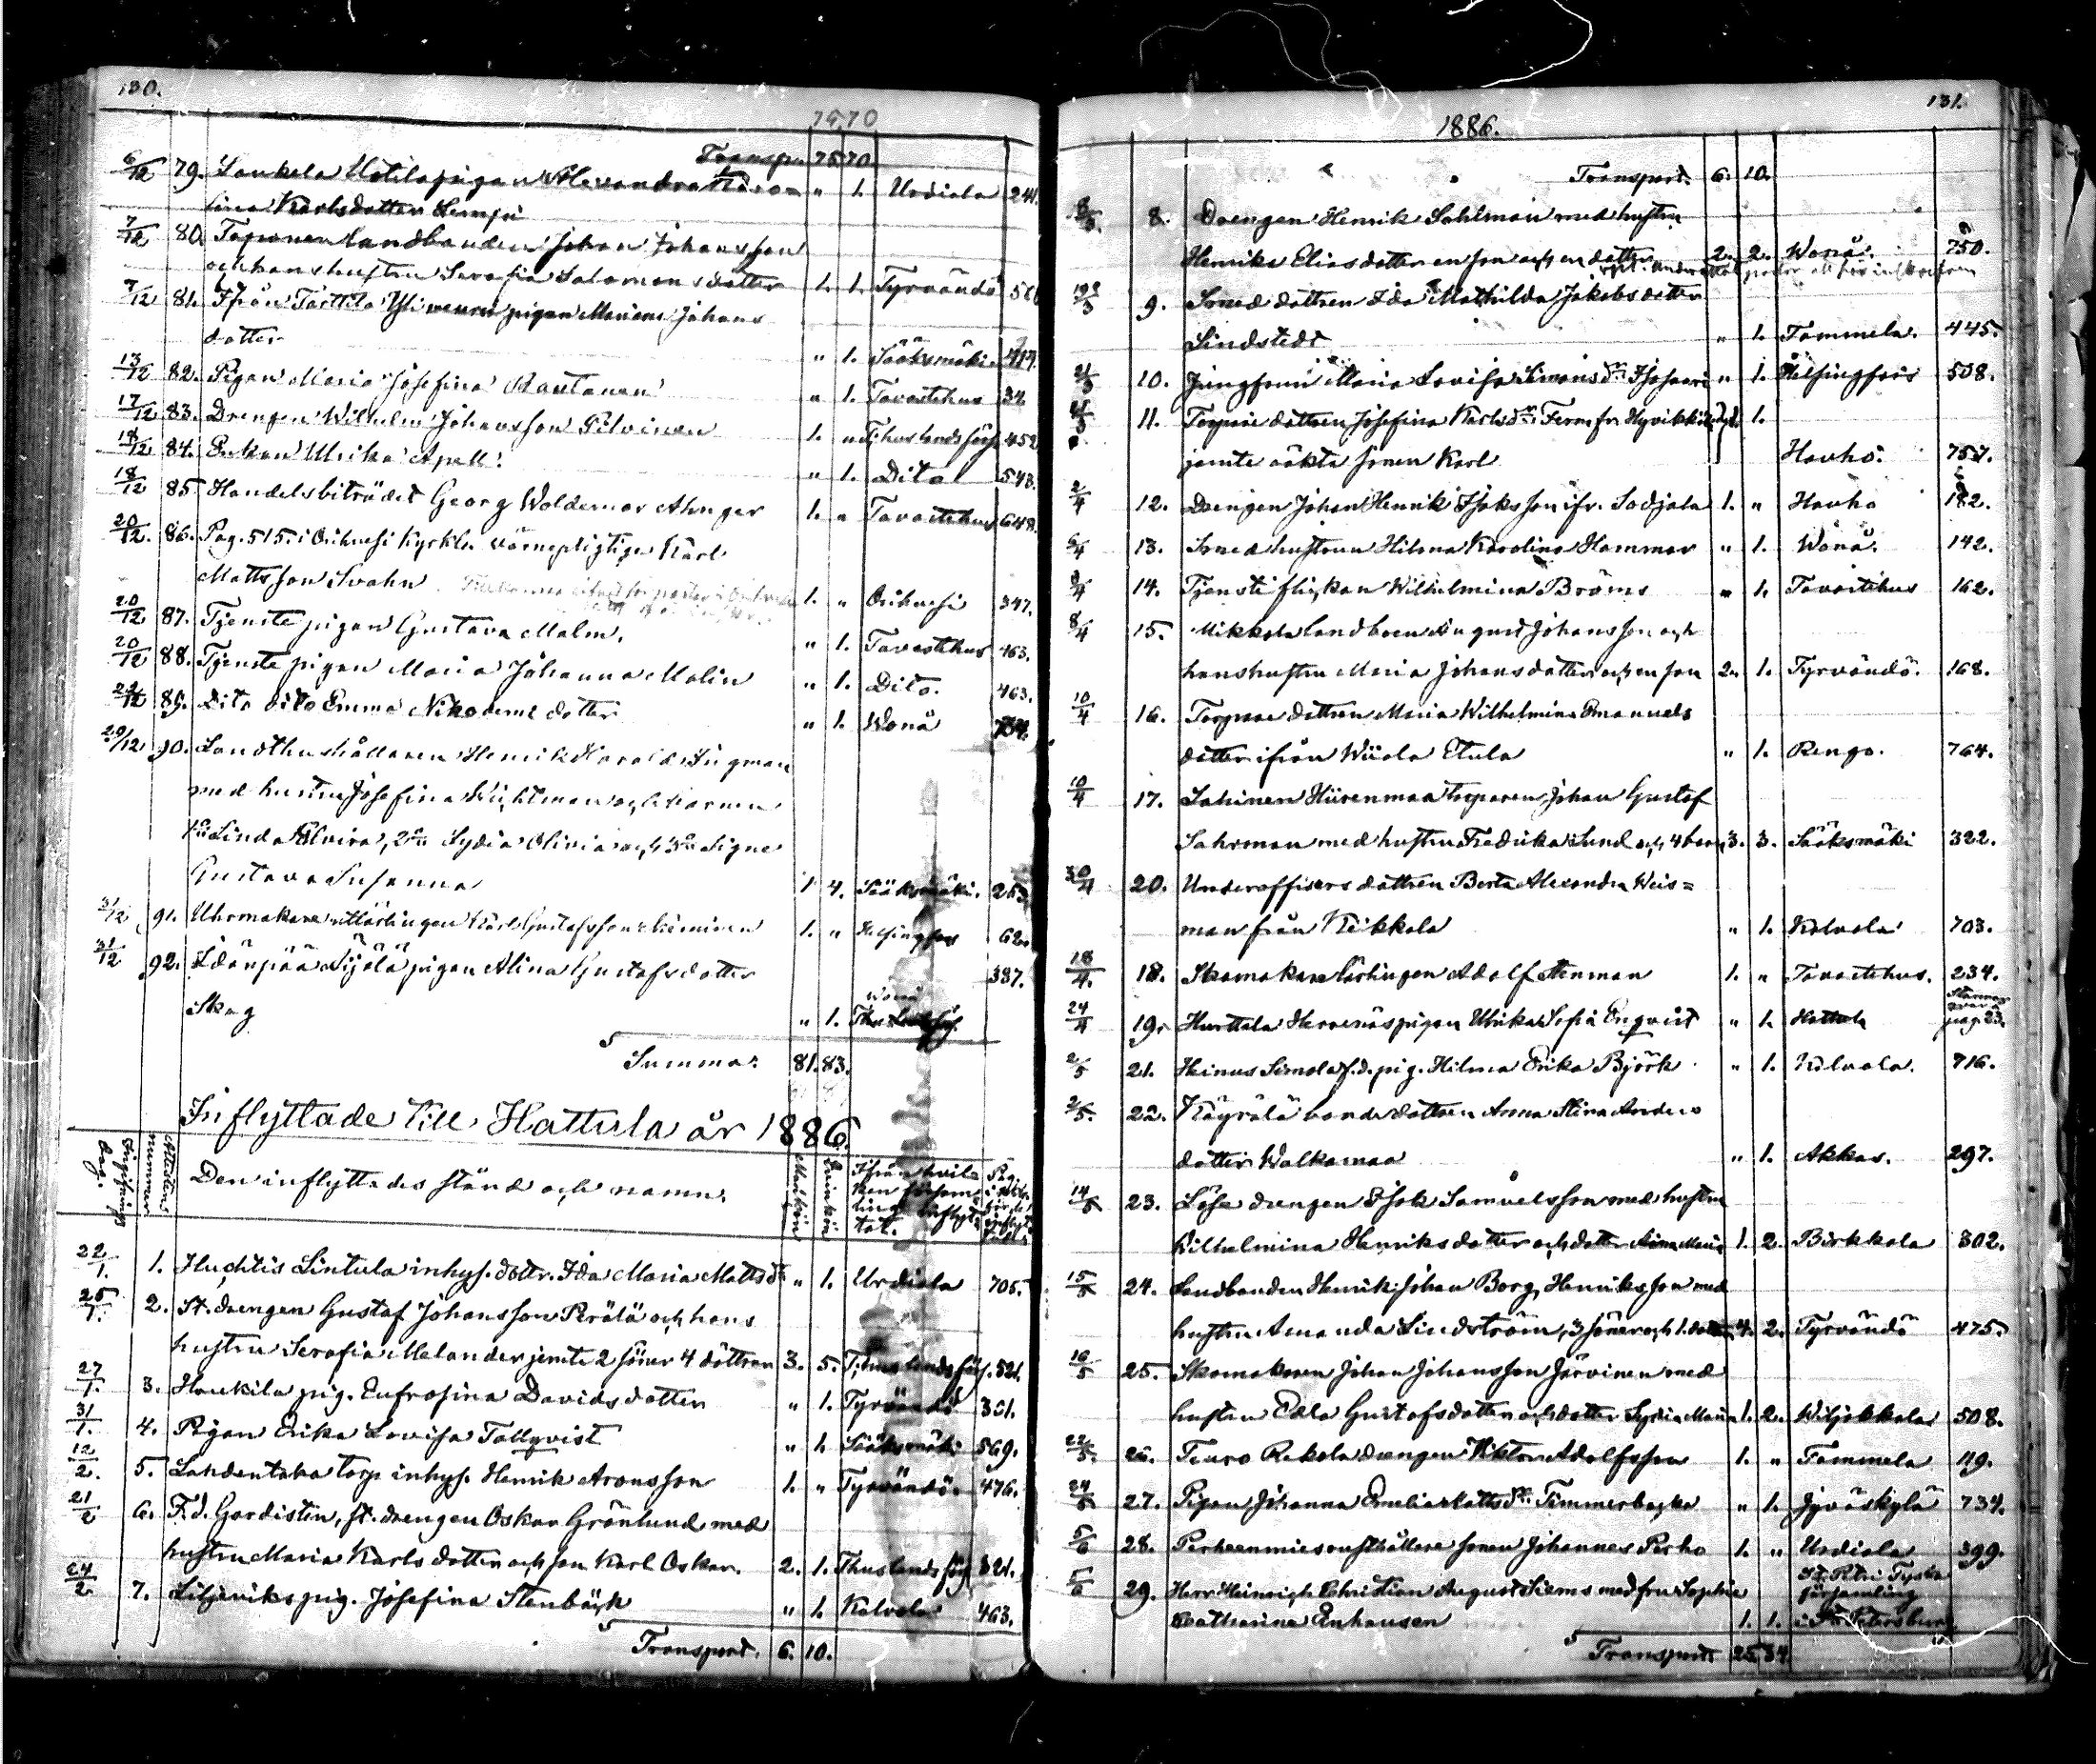 130.
7570
Transp. 75. 70.
6/12 79. Lankela Uotila pigan Alexandra Karo- " 1. Urdiala 241.
lina Karlsdotter Lempi
7/12 80. landbonden Johan Johansson
och hans hustru Serafia Salomonsdotter 1. 1. Tyrvändö
7/12 81. Ifrån Tarttila pigan Mariana Johans
dotter " 1. Sääksmäki
13/12 82. Pigan Maria Josefina Rautanen " 1. Tavastehus 34
17/12 83. Drengen Wilhelm Johansson Pilvinen 1. " T:hus lands förs. 452
18/12 84. Enkan Ulrika Apell. " 1. Dito 548.
18/12 85. Handelsbiträdet Georg Woldemar Alinger 1. " Tavastehus 648.
20/12. 86. Pag. 515. i Orihvesi Kyrkb. värnepligtige Karl
Mattsson Svahn 1. " Orihvesi 347.
20/12 87. Tjenste pigan Gustava Malm. " 1. Tavastehus 463.
20/12 88. Tjenste pigan Maria Johanna Malin " 1. Dito. 463.
22/12 89. Dito dito Emma Nikodemi dotter " 1. Wånå
29/12 90. Landthushållaren Henrik Harald Jugman
med hustru Josefina Wichtman och barnen
1o Linda Elvira, 2o Lydia Olivia och 3o Signe
Gustava Susanna 1. 4. Sääksmäki. 253.
31/12 91. Uhrmakare lärlingen Karl Gustafsson Leminen 1. " Helsingfors 62.
31/12 92. Idänpää Sijälä pigan Alina Gustafsdotter 387.
Skog " 1. Wånå
Summa. 81. 83.
Inflyttade till Hattula år 1886.
Attestens nummer
Den inflyttades stånd och namn.
Mankön
Qvinkön
Ifrån hvil-
ken försam-
ling inflyt-
tat.
22/1. 1. Huchtis Lintula inhys. dottr. Ida Maria Mattsdr " 1. Urdiala 705.
25/1. 2. St. drengen Gustaf Johansson Perälä och hans
hustru Serafia Melander jemte 2 söner 4 döttrar 3. 5. T:hus lands förs. 521.
27/1. 3. Haukila pig. Eufrosina Davidsdotter " 1. Tyrvändö 301.
31/1. 4. Pigan Erika Lovisa Tallqvist " 1. Sääksmäki 569.
12/2. 5. Lahdentaka torp inhys. Henrik Aronsson 1. " Tyrvändö. 476.
21/2 6. F.d. Gardisten, st. drengen Oskar Grönlund med
hustru Maria Karlsdotter och son Karl Oskar. 2. 1. Thus lands förs. 321.
24/2. 7. Liljeviks pig. Josefina Stenbäck " 1. Kalvola 463.
Transport. 6. 10.
131.
1886.
Transport. 6. 10.
8/3. 8. Drengen Henrik Sahlman med hustru
Henrika Eliasdotter en son och en dotter 2. 2. Wånå. 750.
9. Smed dottren Ida Mathilda Jakobsdotter
Lindstedt " 1. Tammela. 445.
21/3 10. Jungfrun Maria Lovisa Simonsdr " 1. Helsingfors 508.
11. Torpare dottren Josefina Karlsdr Ferm fr. 1.
jemte oäkta sonen Karl Hauho. 757.
2/4 12. Drengen Johan Henrik Isaksson ifr. Sodjala 1. " Hauho 182.
6/4 13. Smed hustrun Hilma Karolina Hammar " 1. Wånå. 142.
8/4 14. Tjenste flickan Wilhelmina Bröms " 1. Tavastehus 162.
8/4 15. Mikkola landboen August Johansson och
hans hustru Maria Johansdotter och en son 2. 1. Tyrvändö. 168.
10/4 16. Torpare dottren Maria Wilhelmina Emanuels
dotter ifrån Wiiala Etula " 1. Rengo. 764.
10/4 17. Sahinen Hiirenmaa torparen Johan Gustaf
Sahrman med hustru Fredrika Lund och 4 barn 3. 3. Sääksmäki 322.
30/4 20. Underoffisers dottren Berta Alexandra Weis=
man från Keikkala " 1. Kalvola 703.
18/4. 18. Skomakare lärlingen Adolf Stenman 1. " Tavastehus. 234.
24/4 19. Hurttala Hervenäs pigan Ulrika Sofia Enqvist " 1. Hattula pag. 23.
2/5 21. Heinus Simola f.d. pig. Hilma Erika Björk " 1. Kalvola. 716.
2/5. 22. Käyrälä bonde dottren Anna Stina Anders
dotter Walkamaa " 1. Akkas. 297.
14/5 23. Löse drengen Isak Samuelsson med hustru
Wilhelmina Henriksdotter och dotter Anna Maria 1. 2. Birkkala 302.
15/5 24. Landbonden Henrik Johan Borg, Henriksson med
hustru Amanda Lindström, 3 söner och 1. dotter 4. 2. Tyrvändö 475.
16/5 25. Skomakaren Johan Johansson Järvinen med
hustru Edla Gustafsdotter och dotter Lydia Maria 1. 2. Wiljakkala 508.
22/5. 26. Teuro Rekola drengen Viktor Adolfsson 1. " Tammela 119.
24/5 27. Pigan Johanna Emelia Mattsdr Timmerbacka " 1. Jyväskylä 734.
5/6 28. Perheenmies rusthållare sonen Johannes Perho 1. " Urdiala 399.
5/6 29. Herr Heinrich Christian August Siems med fru Sophie St. Petri Tyska församling
Catharine Enhausen 1. 1. i St. Petersburg
Transport 25. 34.